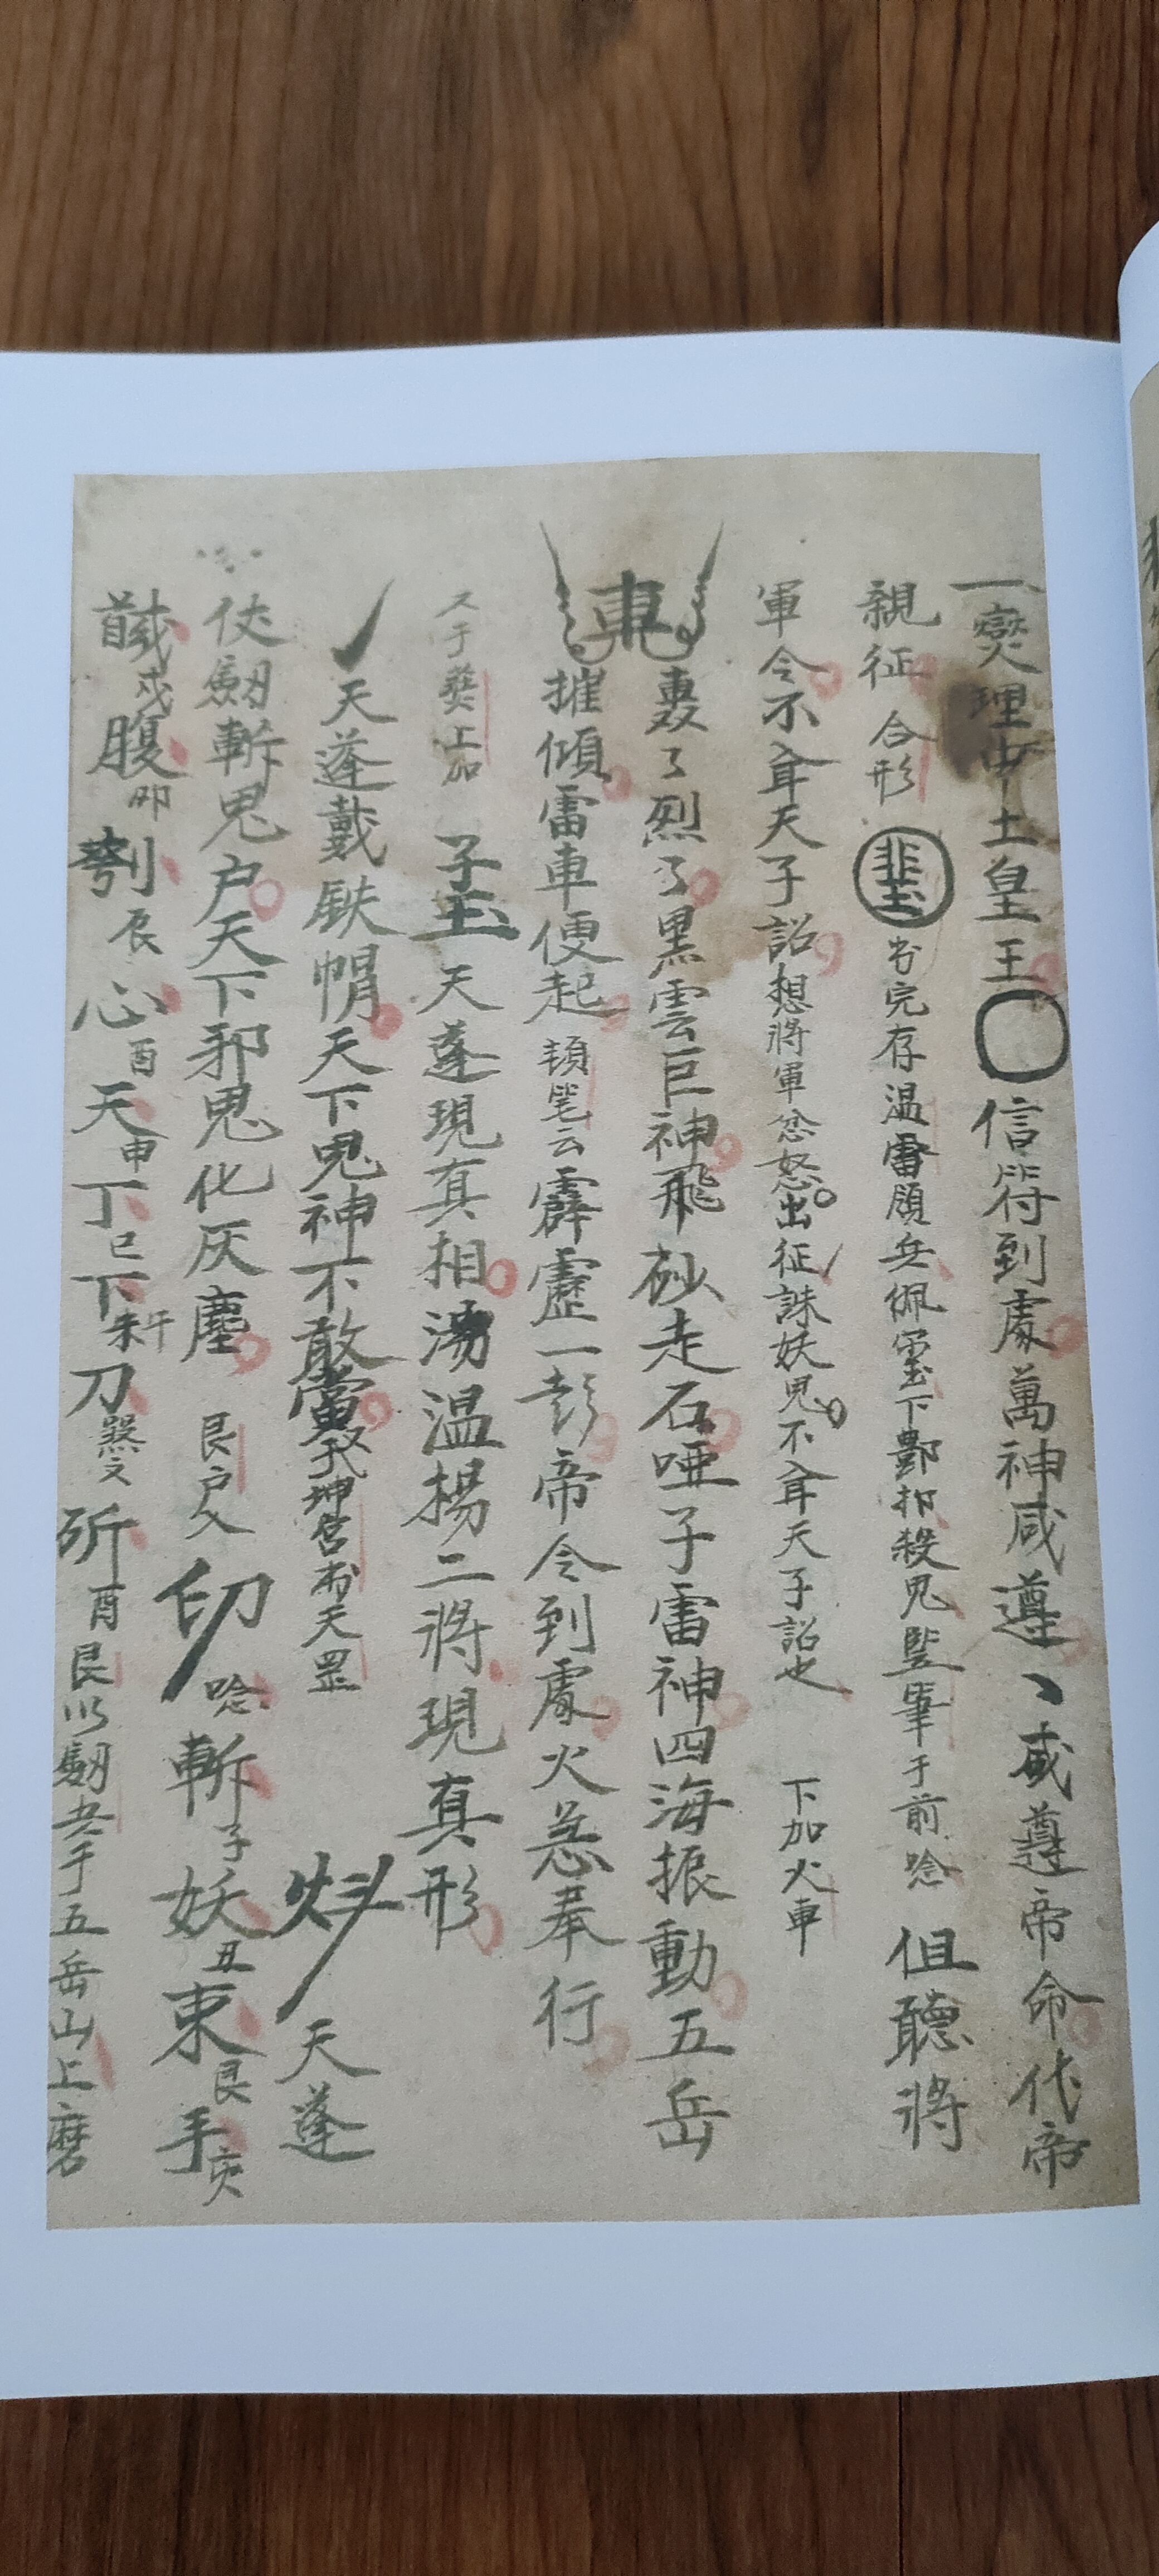 一燮理中土皇王〇信符到處萬神咸遵、咸遵帝命代帝
親征 合形 书完存温雷領兵佩下酆都殺鬼竪筆于前念 但聽將
軍令不聞天子詔想將軍忿怒出征誅妖鬼不聞天子詔也 下加火車
轟了烈了黑雲巨神飛砂走石啞子雷神四海振動五岳
摧傾雷車便起頓筆云霹靂一彭帝令到處火急奉行
又于上加 天蓬現真相湯温楊二將現真形
天蓬戴鉄帽天下鬼神不敢當又于坤宫书天罡 天蓬
伏劒斬鬼戶天下邪鬼化灰塵 艮户入 念斬子妖丑東艮手亥
馘戌腹卯刳辰心酉天申丁巳下未午刀巽文斫酉艮以劒尖于五岳山上磨